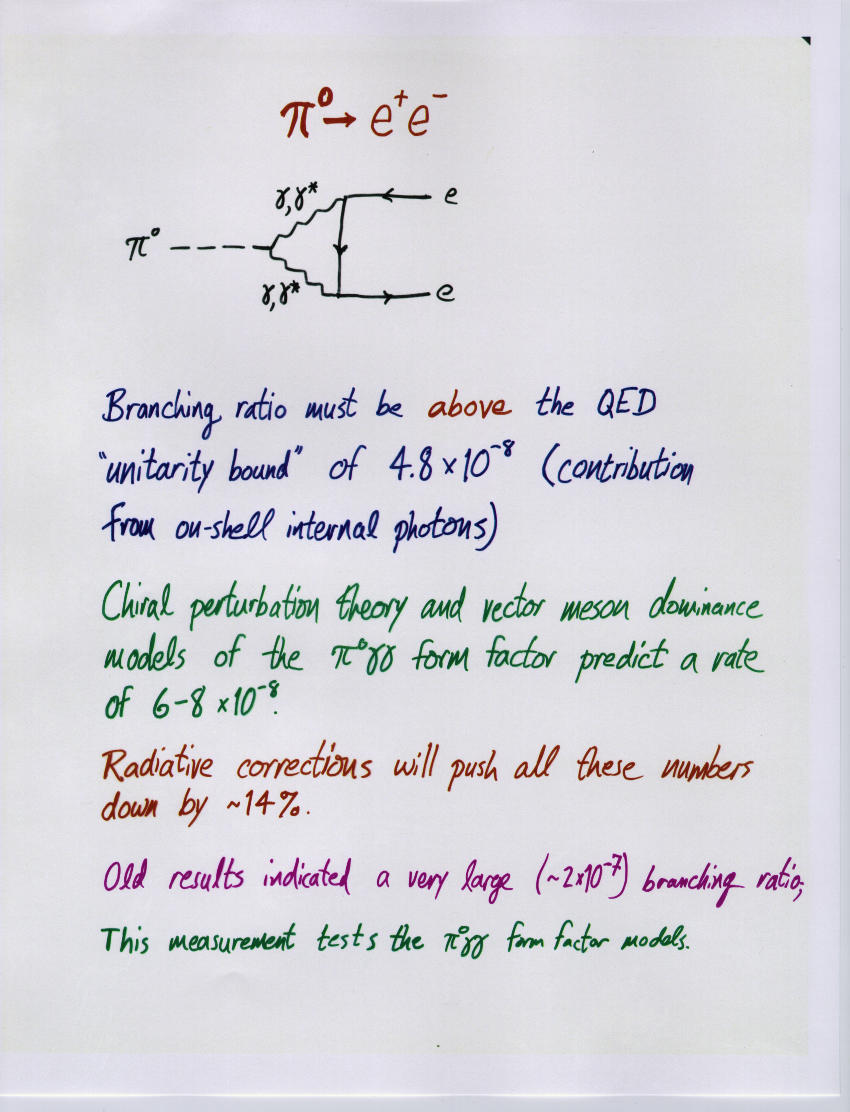 π⁰→ e⁺e⁻
γ,γ*
e
π⁰
γ,γ*
e
Branching ratio must be above the QED
"unitarity bound" of 4.8×10⁻⁸ (contribution
from on-shell internal photons)
Chiral perturbation theory and vector meson dominance
models of the π⁰γγ form factor predict a rate
of 6-8 ×10⁻⁸.
Radiative corrections will push all these numbers
down by ~14%.
Old results indicated a very large (~2×10⁻⁷) branching ratio;
This measurement tests the π⁰γγ form factor models.